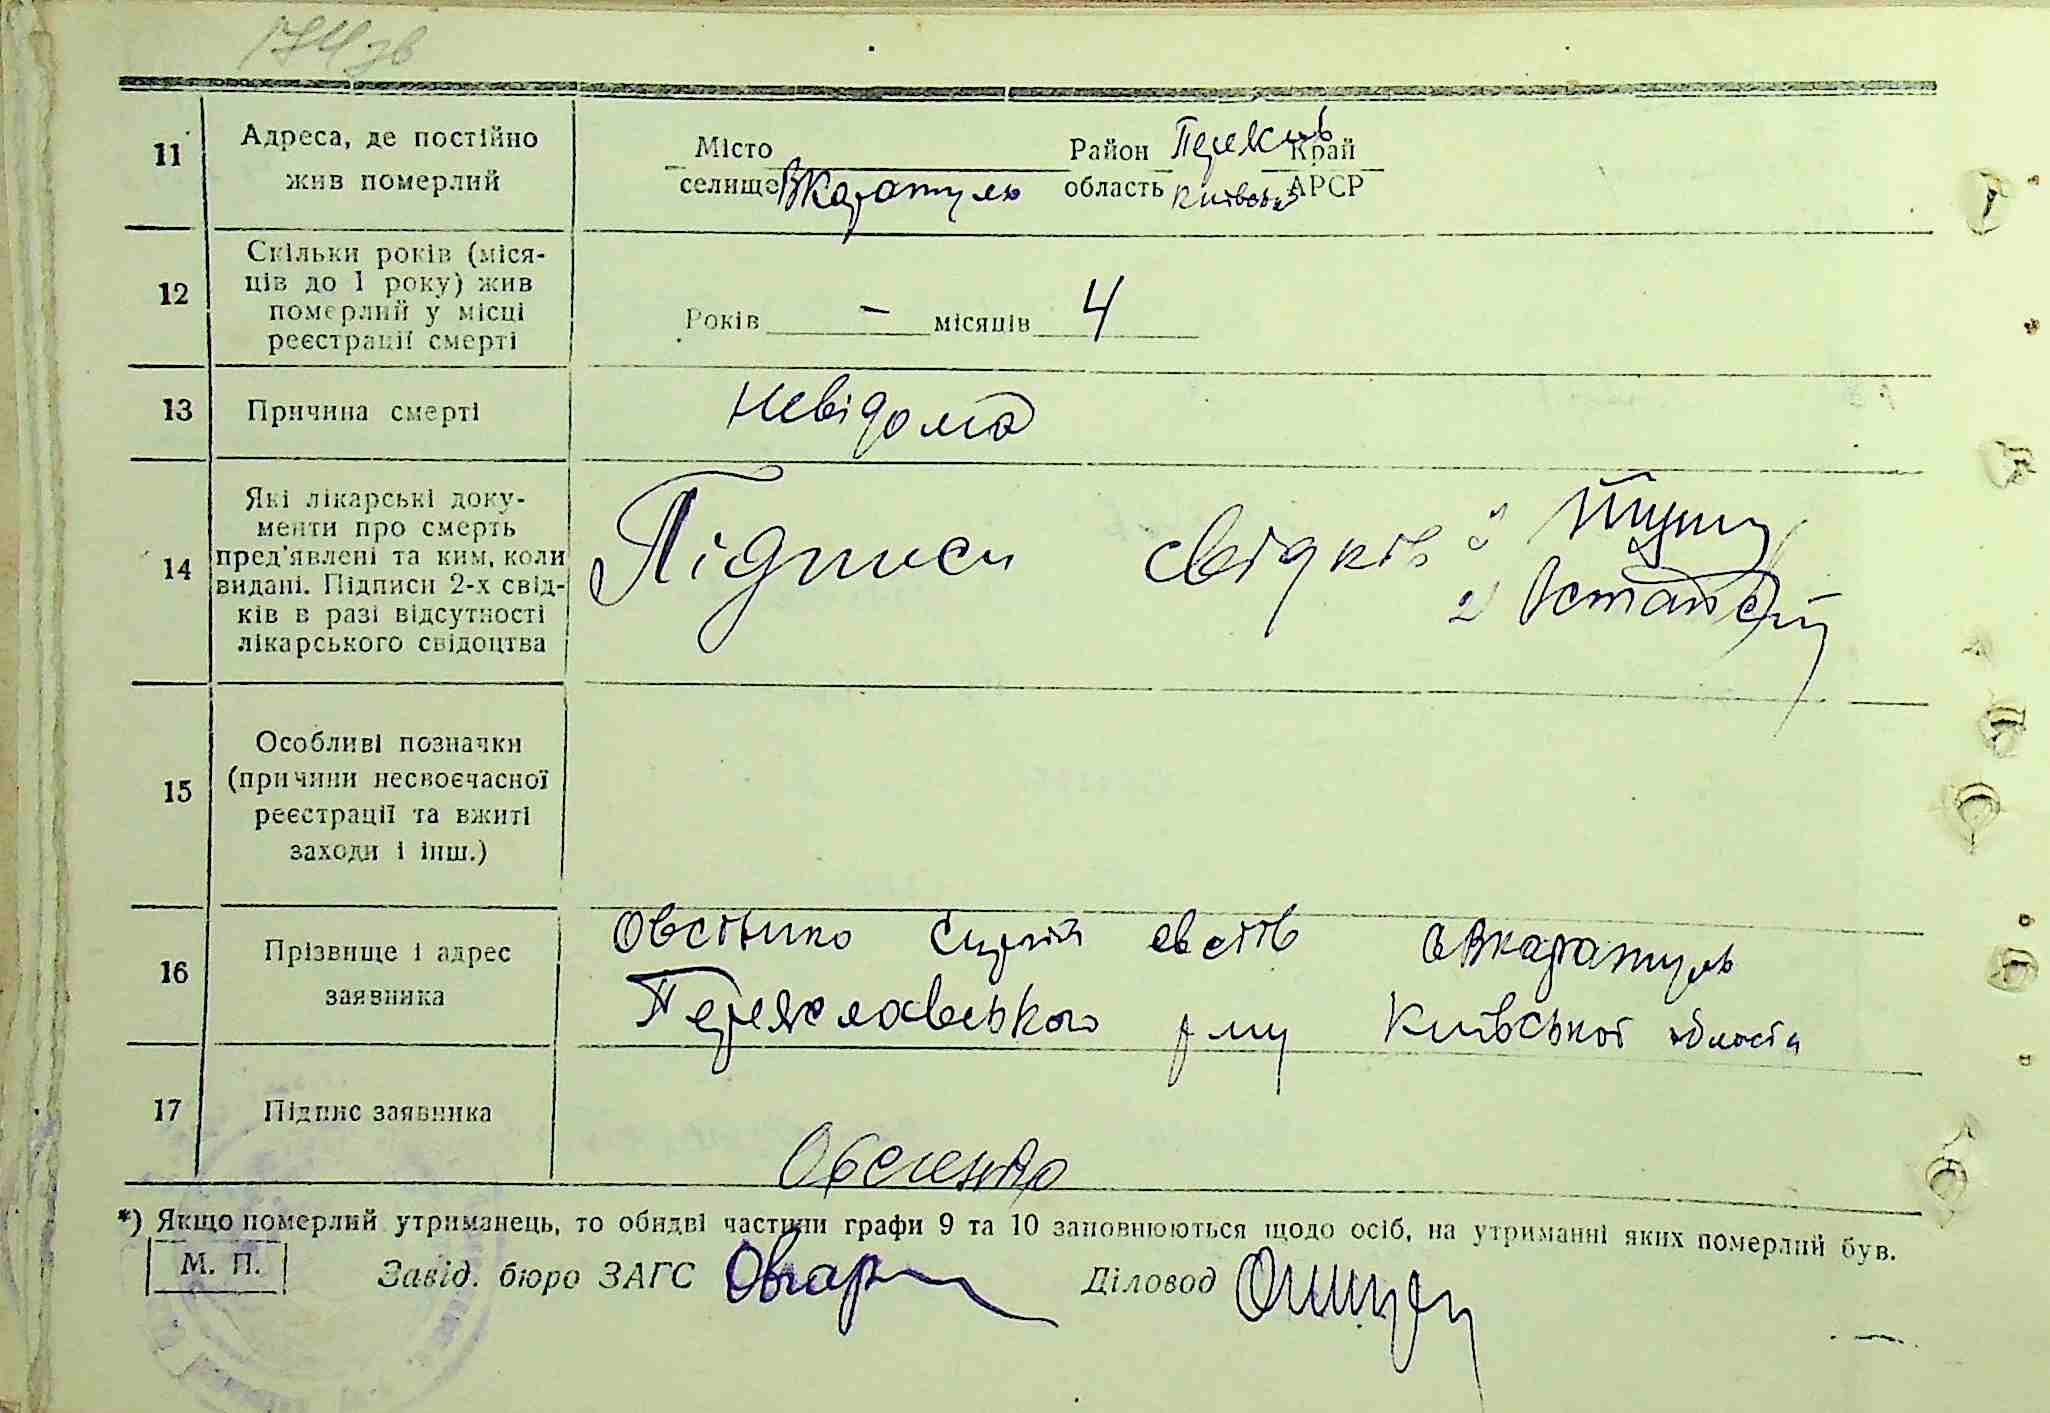 174 зв
11 Адреса, де постійно жив померлий
Місто
селище ВКаратулю
Район Переясл
область Київськ
Край
АРСР
12 Скільки років (міся-
ців до 1 року) жив
померлий у місці
реєстрації смерті
Років – місяців 4
13 Причина смерті невідома
14 Які лікарські доку-
менти про смерть
пред'явлені та ким, коли
видані. Підписи 2-х свід-
ків в разі відсутності
лікарського свідоцтва
Підписи свідків
2)
15 Особливі позначки
(причини несвоєчасної
реєстрації та вжиті
заходи і інш.)
16 Прізвище і адрес
заявника
Овсінко овсіів
Переяславського Київської області
17 Підпис заявника
Овсиенко
*) Якщо померлий утриманець, то обидві частини графи 9 та 10 заповнюються щодо осіб, на утриманні яких померлий був.
М. П.
Завід. бюро ЗАГС Діловод